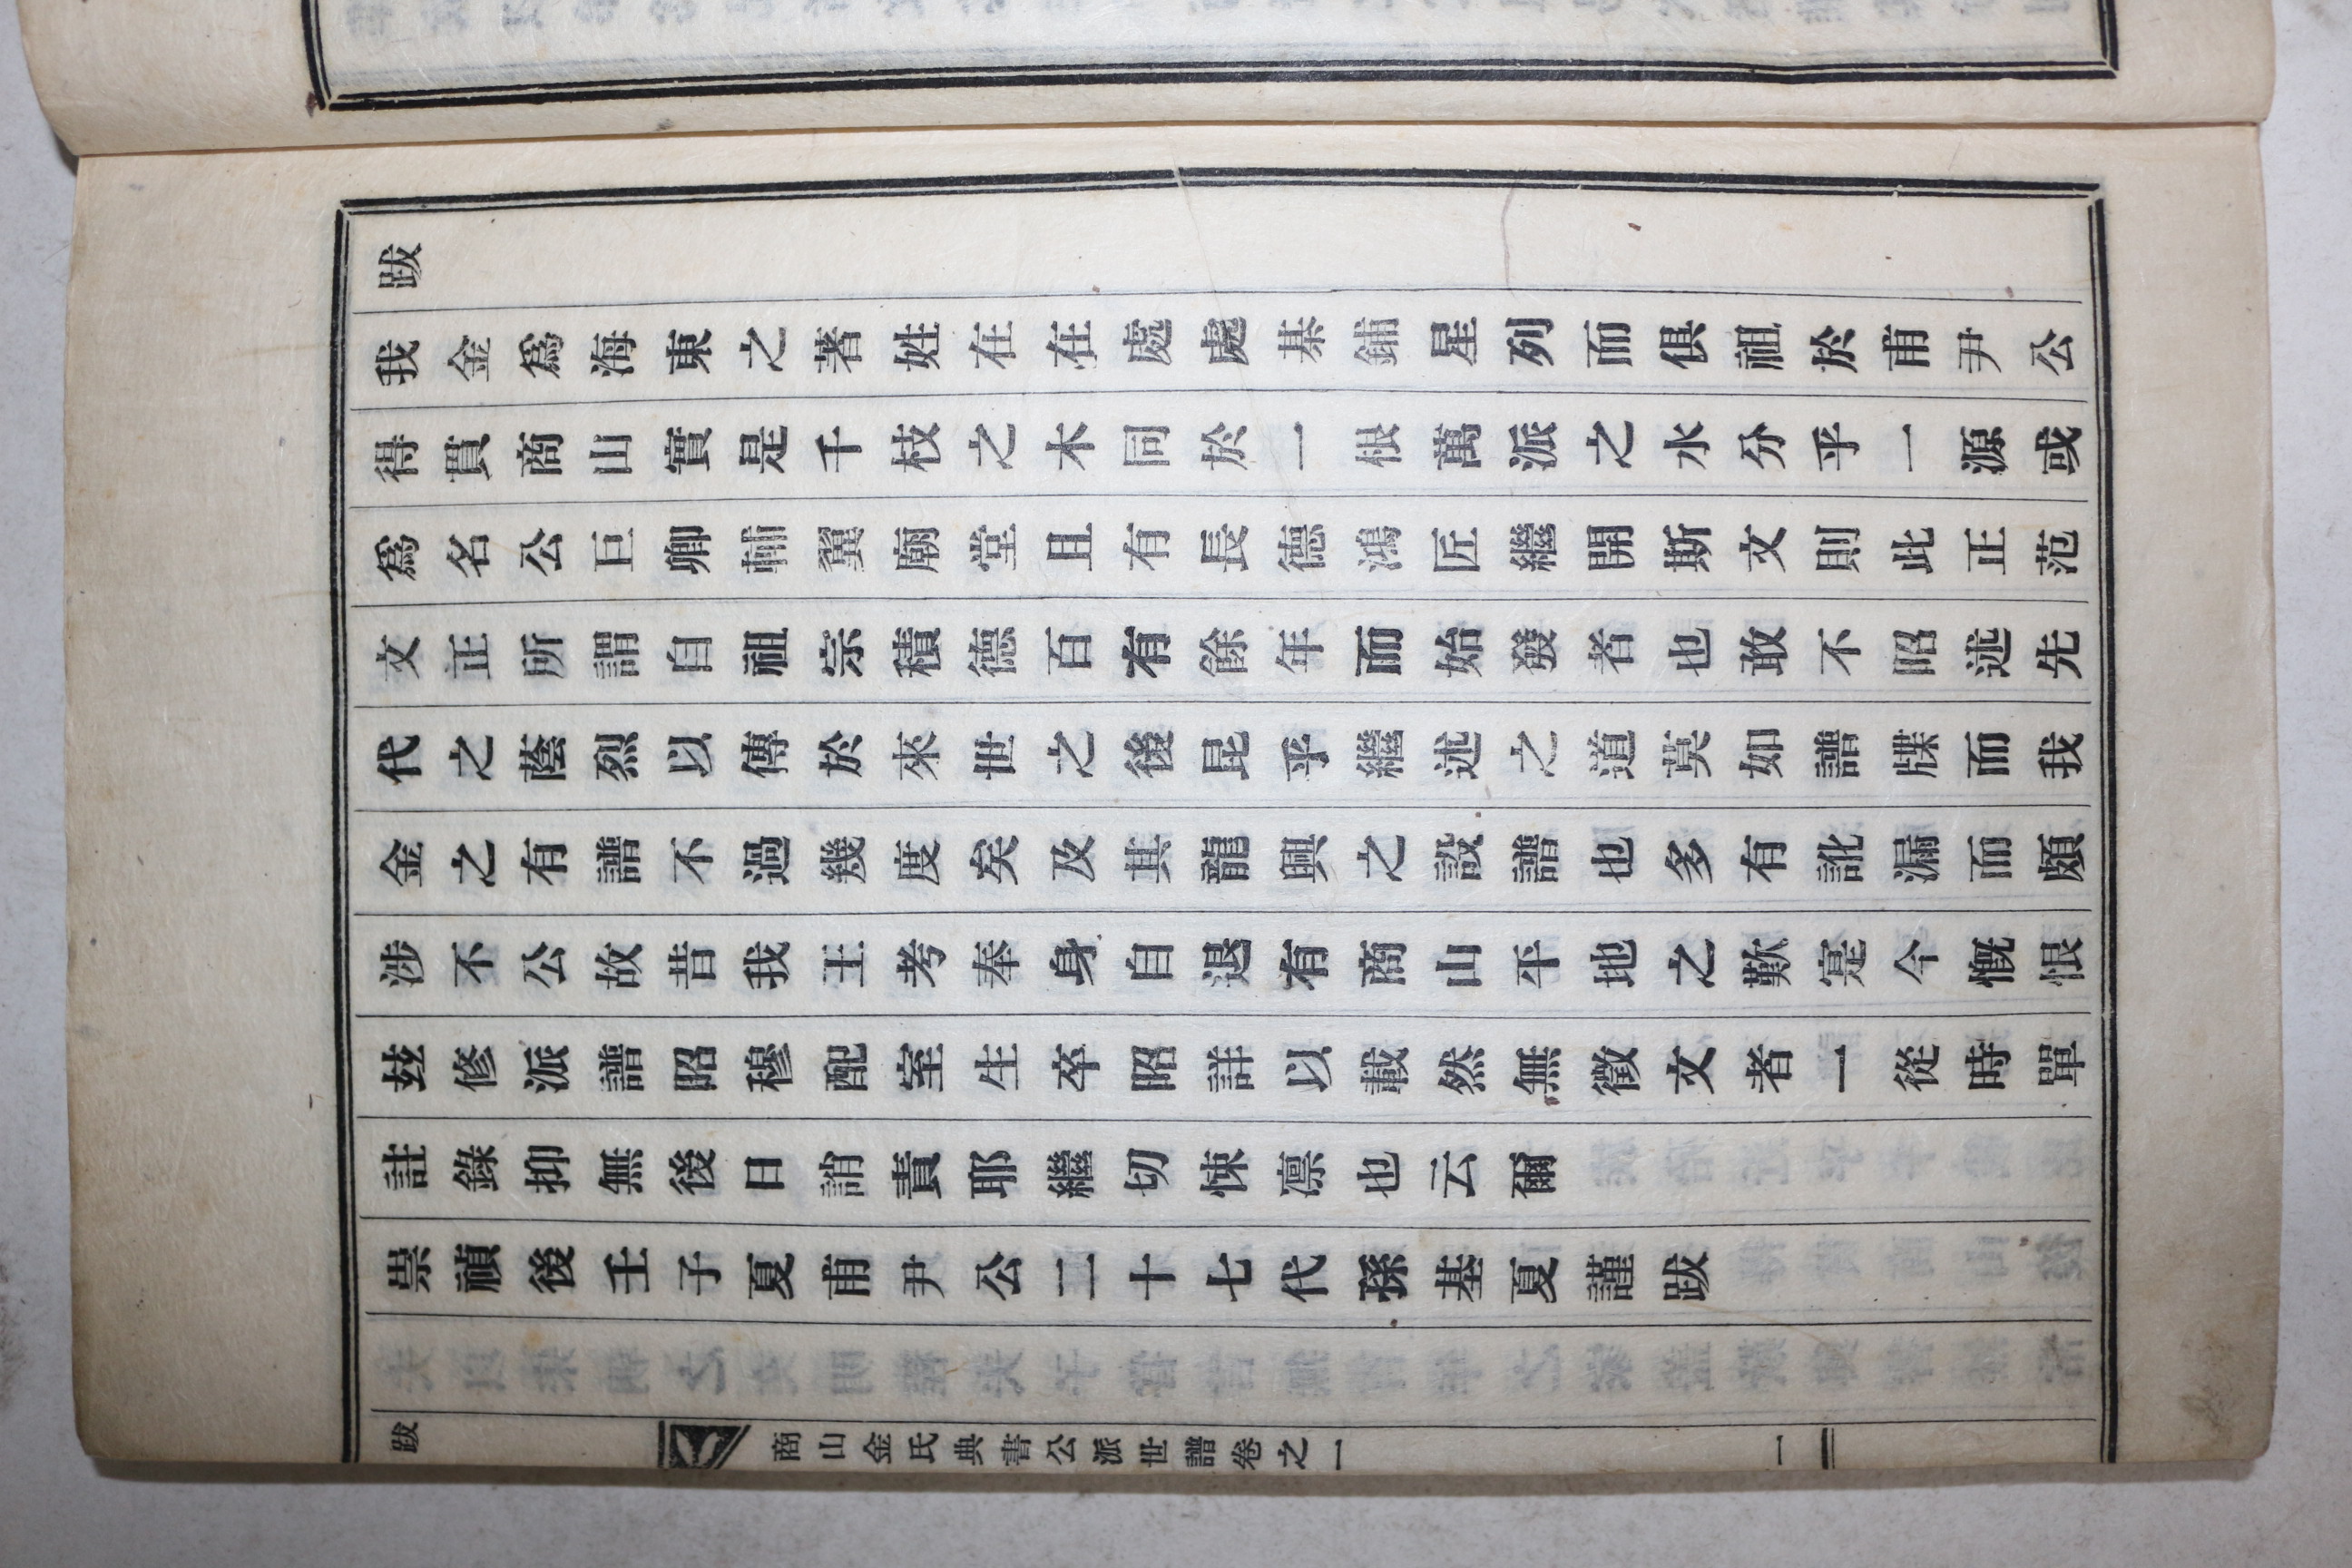 跋
我金爲海東之著姓在在處處棊鋪星列而俱祖於甫尹公
得貫商山實是千枝之木同於一根萬派之水分乎一源或
爲名公巨卿輔翼廟堂且有長德鴻匠繼開斯文則此正范
文正所謂自祖宗積德百有餘年而始發者也敢不昭述先
代之蔭烈以傳於來世之後昆乎繼述之道莫如譜牒而我
金之有譜不過幾度矣及其龍興之設譜也多有訛漏而頗
涉不公故昔我王考奉身自退有商山平地之歎寔今慨恨
玆修派譜昭穆配室生卒昭詳以載然無徵文者一從時單
註錄抑無後日誚責耶繼切悚凛也云爾
崇禎後壬子夏甫尹公二十七代孫基夏謹跋
跋
商山金氏典書公派世譜卷之一
一